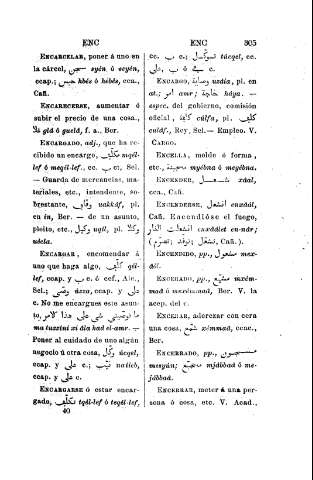 ENC
ENC
305
ENCARCELAR, poner á uno en
la cárcel, سجن syén ó seyén,
ccap.; حبس hbés ó hébés, cca.,
Cañ.
ENCARECERSE, aumentar ó
subir el precio de una cosa,
غلا glá ó guelá, f. a., Ber.
ENCARGADO, adj., que ha re-
cibido un encargo,
lef ó
— Guarda de mercancías, ma-
teriales, etc., intendente, so-
brestante, وقاف uakkáf, pl.
en in, Ber. — de un asunto,
pleito, etc., وكيل uqil, pl. وكلا
udela.
ENCARGAR, encomendar á
uno que haga algo, كلف qél-
lef, ccap. y ب c. ó cef., Alc.,
Sel.; وصى ccap. y على
c. No me encargues este asun-
to,
ma tuzzini xi dia had el-amr. —
Poner al cuidado de uno algún
negocio ú otra cosa, وكل úcqel,
ccap. y على c.; نيب naiieb,
ccap. y على c.
ENCARGARSE ó estar encar-
gado, تكلف tqél-lef ó teqél-lef,
40
cc. ب c.; توكل túcqel, cc.
على, ب ó في c.
ENCARGO, وصاية uzdia, pl. en
at; امر amr; حاجة háya. —
espec. del gobierno, comisión
oficial, كلفة cúlfa, pl. كلف
culáf., Rey, Sel.— Empleo. V.
CARGO.
ENCELLA, molde ó forma,
etc., مجبنة myébna ó megébna.
ENCENDER, شعل xáal,
cca., Cañ.
ENCENDERSE, انشعل enxáâl,
Cañ. Encendióse el fuego,
انشعلت النار enxáâlet en-nâr;
(تشعل; توقد; تضرم, Cañ.).
ENCENDIDO, pp., مشعول mex-
ôl.
ENCERADO, pp., مشمع mxém-
mad ó mexémmad, Ber. V. la
acep. del v.
ENCERAR, aderezar con cera
una cosa, شمع xémmad, ccac.,
Ber.
ENCERRADO, pp., مسجون
mesyún; مجبد mjábbad ó me-
jábbad.
ENCERRAR, meter á una per-
sona ó cosa, etc. V. Acad.,